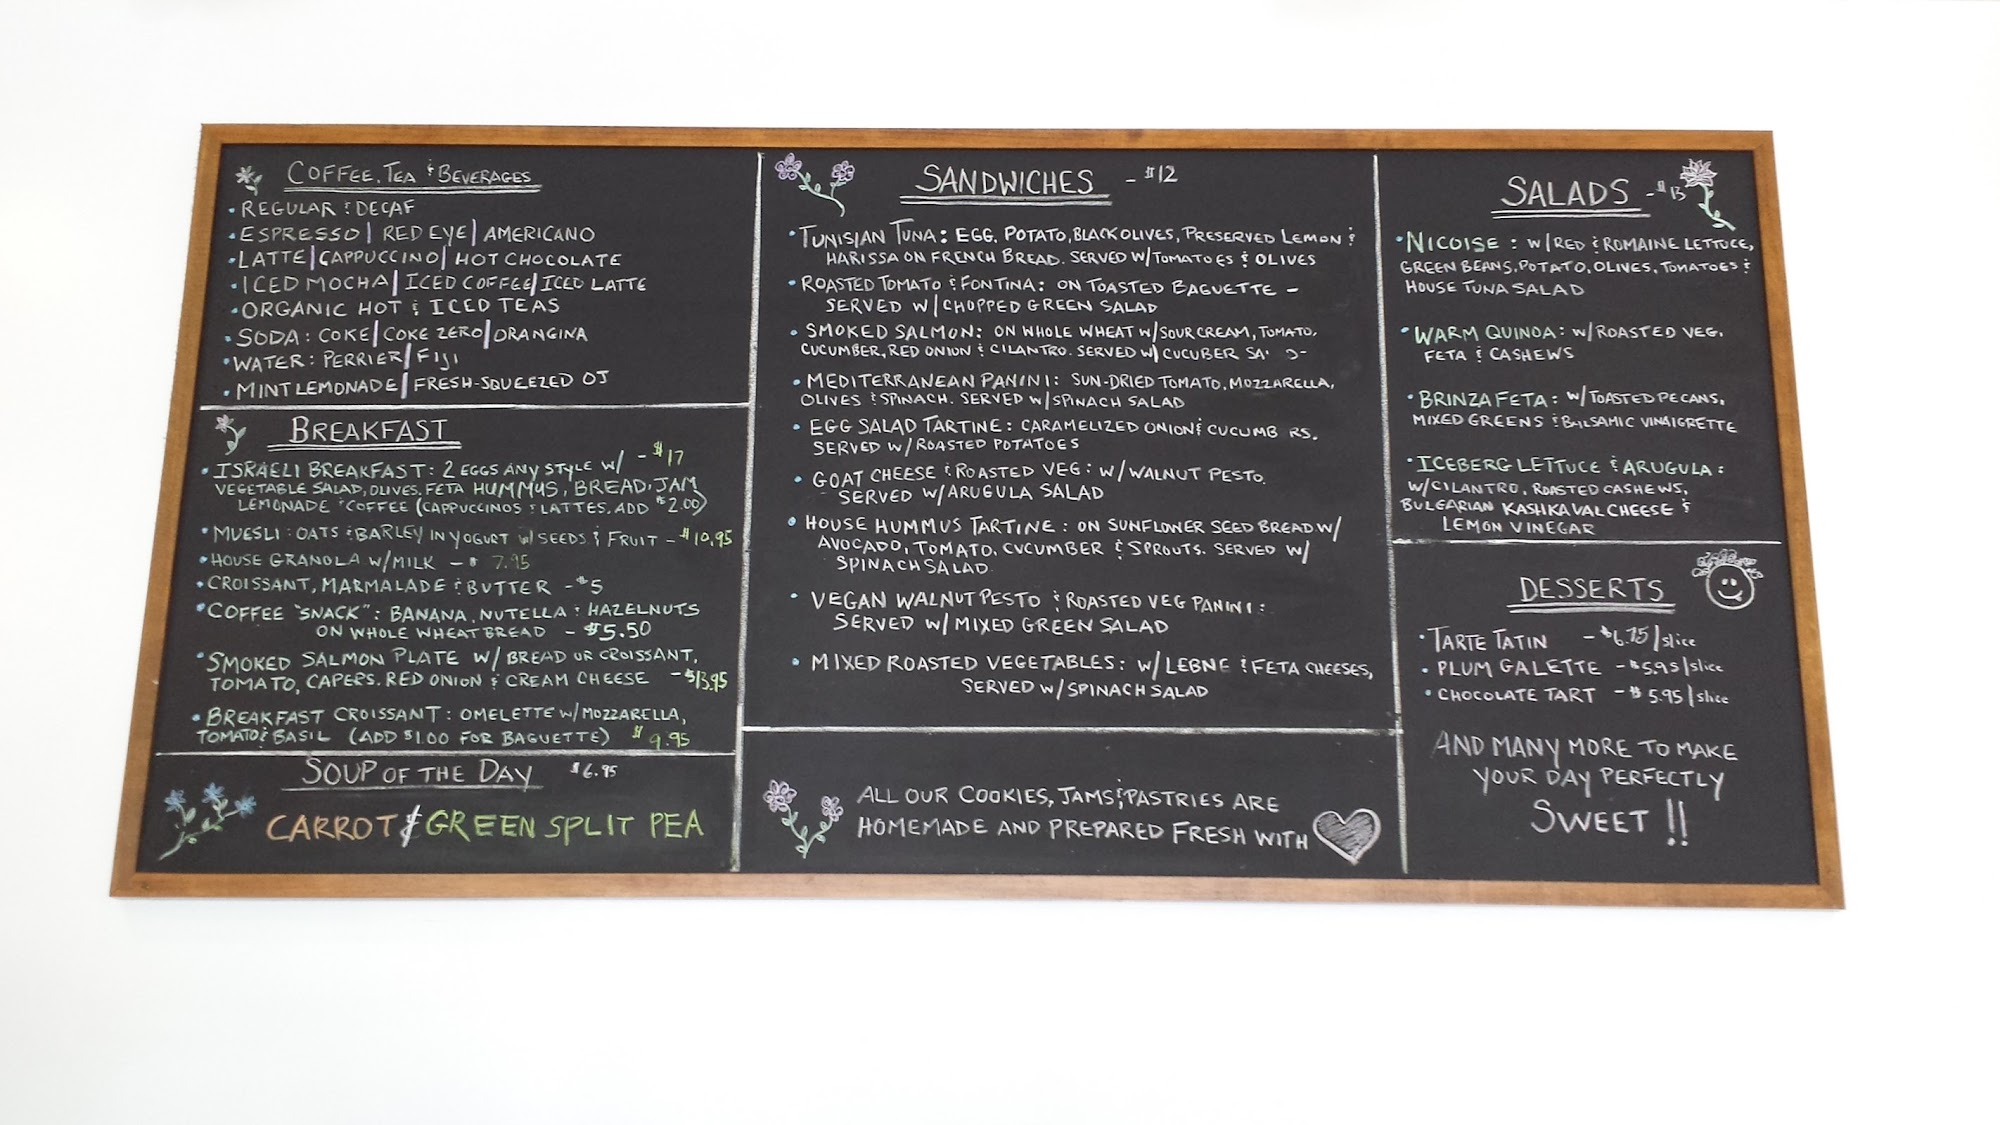 COFFEE, TEA & BEVERAGES
• REGULAR & DECAF
• ESPRESSO | RED EYE | AMERICANO
• LATTE | CAPPUCCINO | HOT CHOCOLATE
• ICED MOCHA | ICED COFFEE | ICED LATTE
• ORGANIC HOT & ICED TEAS
• SODA: COKE | COKE ZERO | ORANGINA
• WATER: PERRIER | FIJI
• MINT LEMONADE | FRESH-SQUEEZED OJ
BREAKFAST
• ISRAELI BREAKFAST: 2 EGGS ANY STYLE W/ - $17
VEGETABLE SALAD, OLIVES, FETA HUMMUS, BREAD, JAM
LEMONADE & COFFEE (CAPPUCINOS & LATTES, ADD $2.00)
• MUESLI: OATS & BARLEY IN YOGURT W/ SEEDS & FRUIT - $10.95
• HOUSE GRANOLA W/ MILK - $ 7.95
• CROISSANT, MARMALADE & BUTTER - $5
• COFFEE "SNACK": BANANA, NUTELLA & HAZELNUTS
ON WHOLE WHEAT BREAD - $5.50
• SMOKED SALMON PLATE W/ BREAD OR CROISSANT,
TOMATO, CAPERS, RED ONION & CREAM CHEESE - $13.95
• BREAKFAST CROISSANT: OMELETTE W/ MOZZARELLA,
TOMATO & BASIL (ADD $1.00 FOR BAGUETTE) $9.95
SOUP OF THE DAY $6.95
CARROT & GREEN SPLIT PEA
SANDWICHES - $12
• TUNISIAN TUNA: EGG, POTATO, BLACK OLIVES, PRESERVED LEMON &
HARISSA ON FRENCH BREAD. SERVED W/ TOMATOES & OLIVES
• ROASTED TOMATO & FONTINA: ON TOASTED BAGUETTE -
SERVED W/ CHOPPED GREEN SALAD
• SMOKED SALMON: ON WHOLE WHEAT W/ SOUR CREAM, TOMATO,
CUCUMBER, RED ONION & CILANTRO. SERVED W/ CUCUBER
• MEDITERRANEAN PANINI: SUN-DRIED TOMATO, MOZZARELLA,
OLIVES & SPINACH. SERVED W/ SPINACH SALAD
• EGG SALAD TARTINE: CARAMELIZED ONION & CUCUMB RS.
SERVED W/ ROASTED POTATOES
• GOAT CHEESE & ROASTED VEG: W/ WALNUT PESTO.
SERVED W/ ARUGULA SALAD
• HOUSE HUMMUS TARTINE: ON SUNFLOWER SEED BREAD W/
AVOCADO, TOMATO, CUCUMBER & SPROUTS. SERVED W/
SPINACH SALAD
• VEGAN WALNUT PESTO & ROASTED VEG PANINI:
SERVED W/ MIXED GREEN SALAD
• MIXED ROASTED VEGETABLES: W/ LEBNE & FETA CHEESES,
SERVED W/ SPINACH SALAD
ALL OUR COOKIES, JAMS & PASTRIES ARE
HOMEMADE AND PREPARED FRESH WITH
SALADS - $13
• NICOISE: W/ RED & ROMAINE LETTUCE,
GREEN BEANS, POTATO, OLIVES, TOMATOES &
HOUSE TUNA SALAD
• WARM QUINOA: W/ ROASTED VEG,
FETA & CASHEWS
• BRINZA FETA: W/ TOASTED PECANS,
MIXED GREENS & BALSAMIC VINAIGRETTE
• ICEBERG LETTUCE & ARUGULA:
W/ CILANTRO, ROASTED CASHEWS,
BULGARIAN KASHKAVAL CHEESE &
LEMON VINEGAR
DESSERTS
• TARTE TATIN - $6.75/slice
• PLUM GALETTE - $5.95/slice
• CHOCOLATE TART - $5.95/slice
AND MANY MORE TO MAKE
YOUR DAY PERFECTLY
SWEET !!